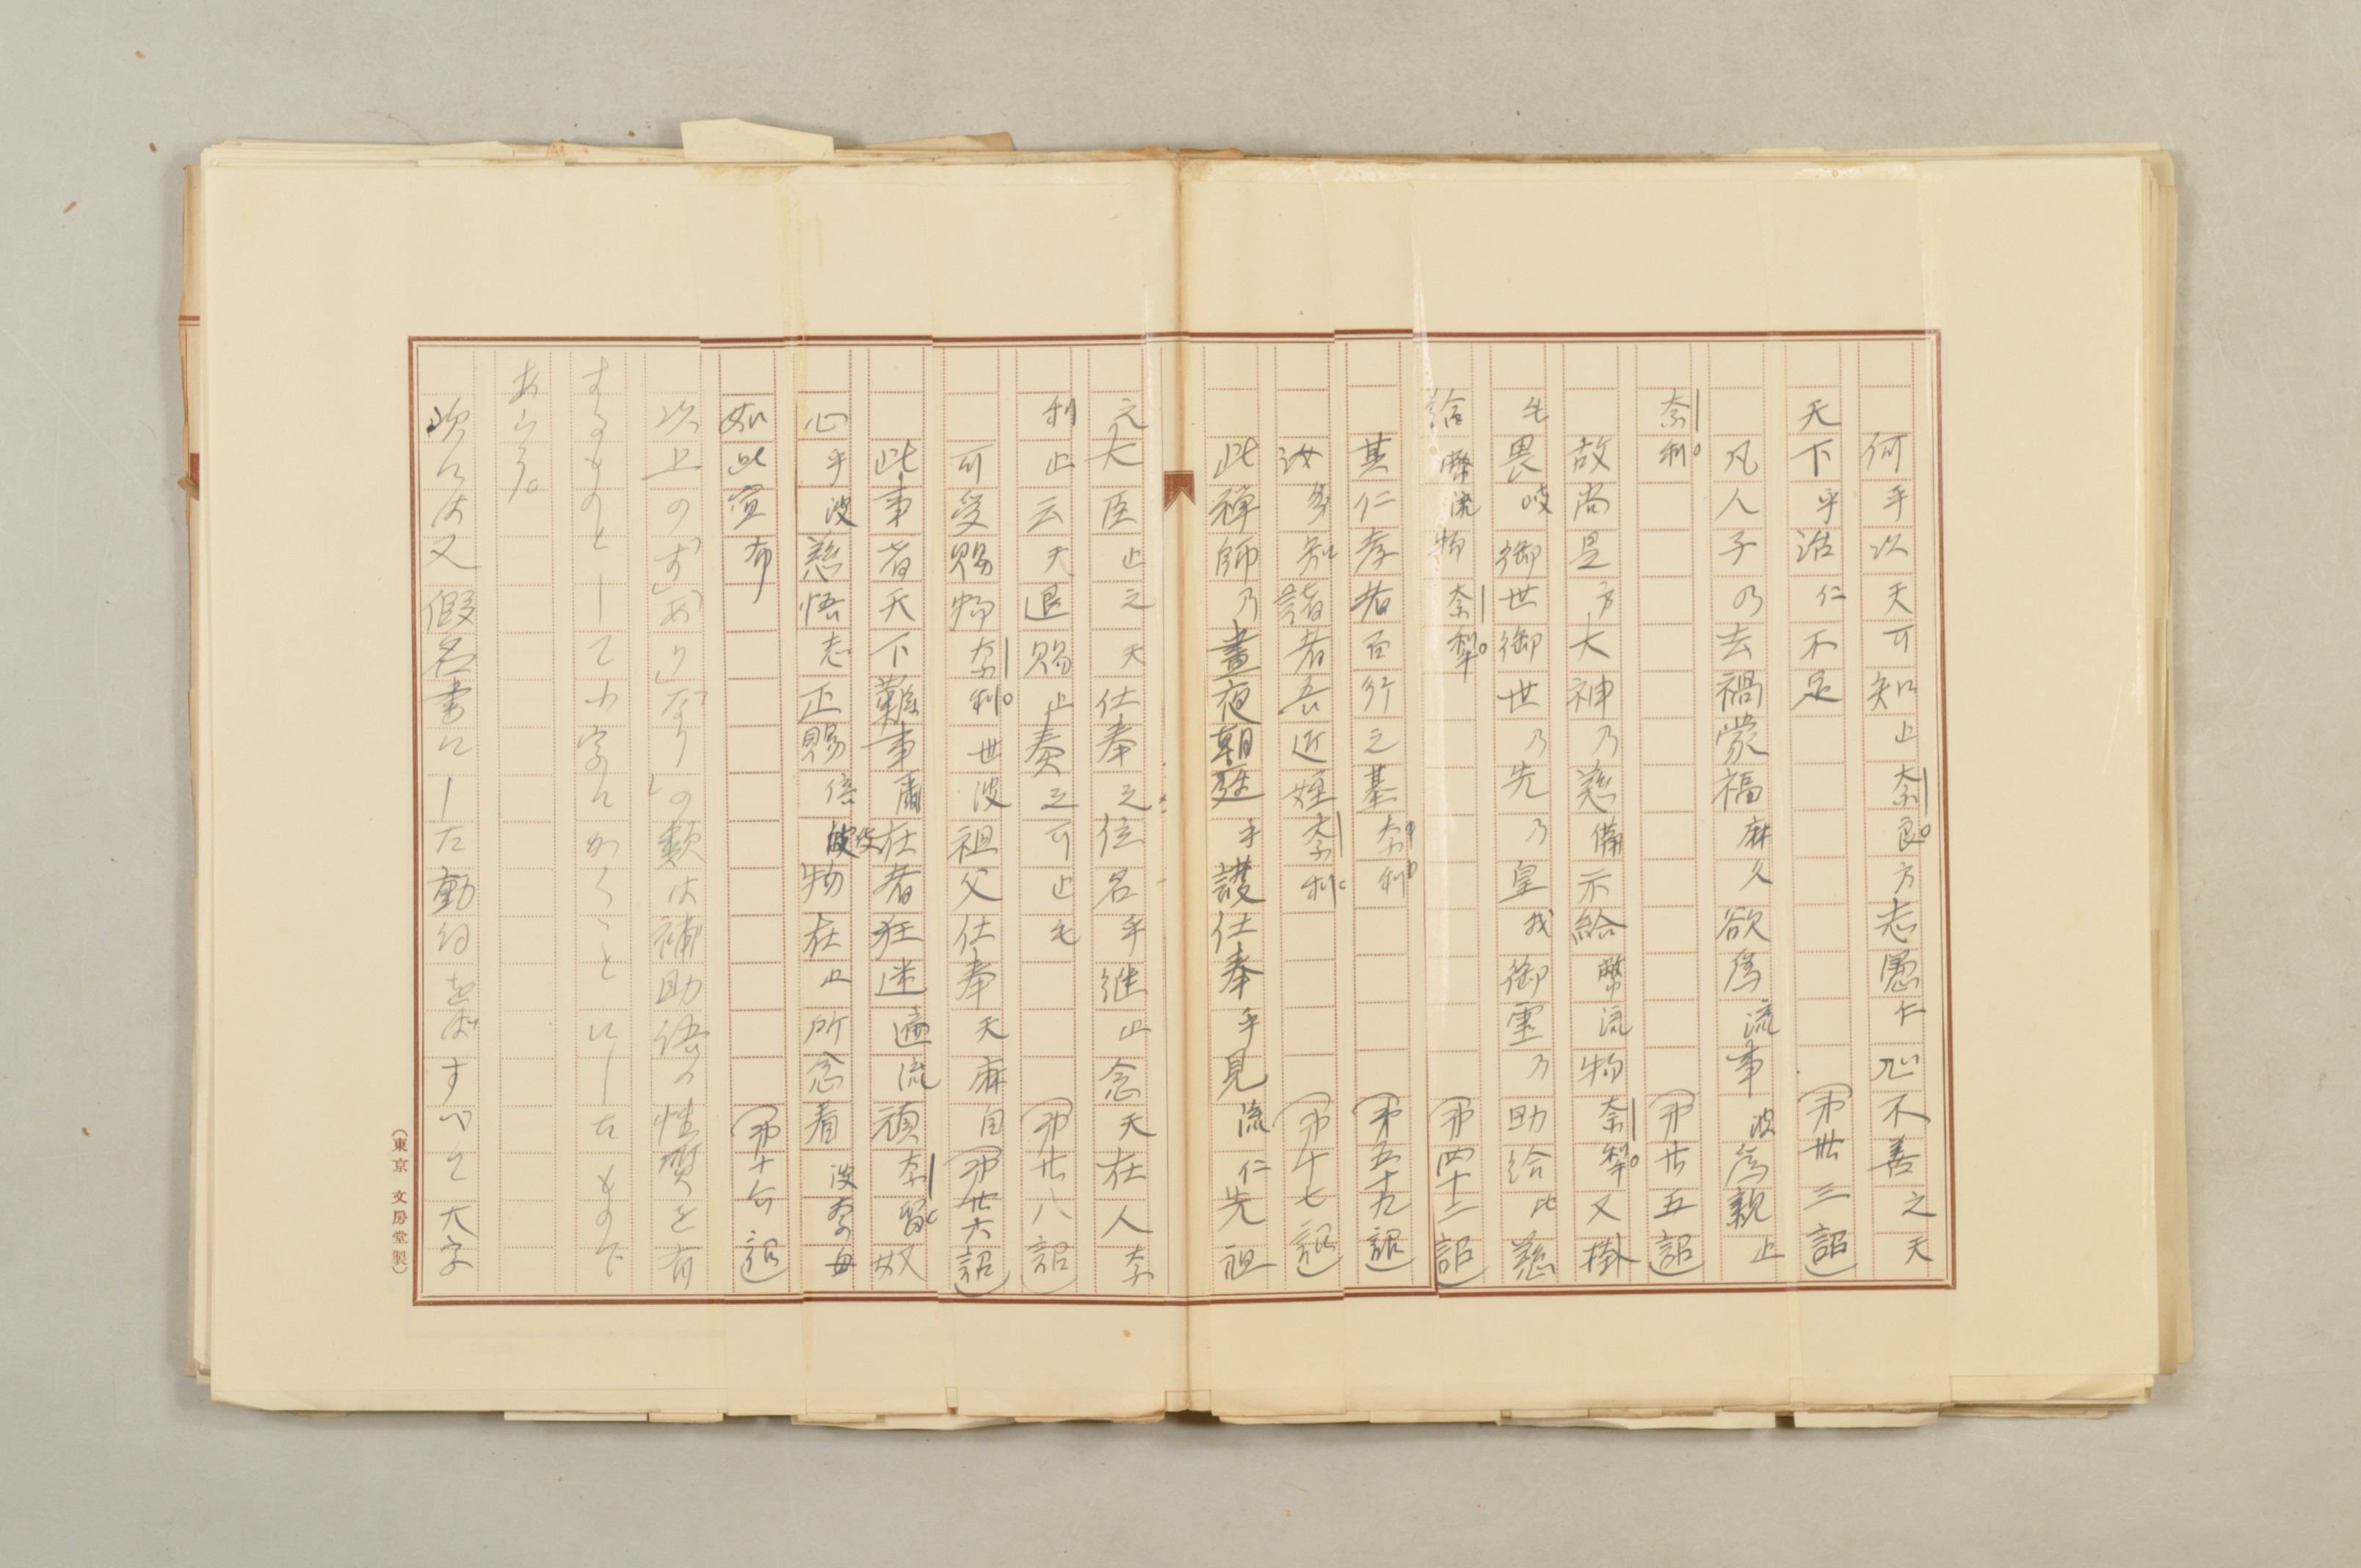 何乎以天可知止奈良方志愚仁心不善之天
天下乎治仁不足 (第卅三詔)
凡人子乃去禍蒙福麻久欲為流事波為親止
奈利。 (第廿五詔)
故尚是方大神乃慈備示給幣流物奈利。又掛
毛畏岐御世御世乃先乃皇我御霊乃助給比慈
給幣流物奈犁。 (第四十二詔)
其仁孝者百行之基奈利 (第五十九詔)
汝多知諸者吾近姪奈利 (第十七詔)
此禅師乃晝夜朝廷乎護仕奉乎見流仁先祖
之大臣止之天仕奉之位名乎継止念天在人奈
利止云天退賜止奏之可止毛 (第廿八詔)
可受賜物奈利。世波祖父仕奉天麻自 (第廿六詔)
此事者天下難事爾在者狂迷遍流頑奈留奴
心乎波慈悟志正賜倍伎物在止所念看波奈母
如此宣布 (第十六詔)
以上の「ず」「あり」「なり」の類は補助語の性質を有
するものとして小字にかくことにしたもので
あらう。
次には又假名書にした動詞をばすべて大字
(東京 文房堂製)